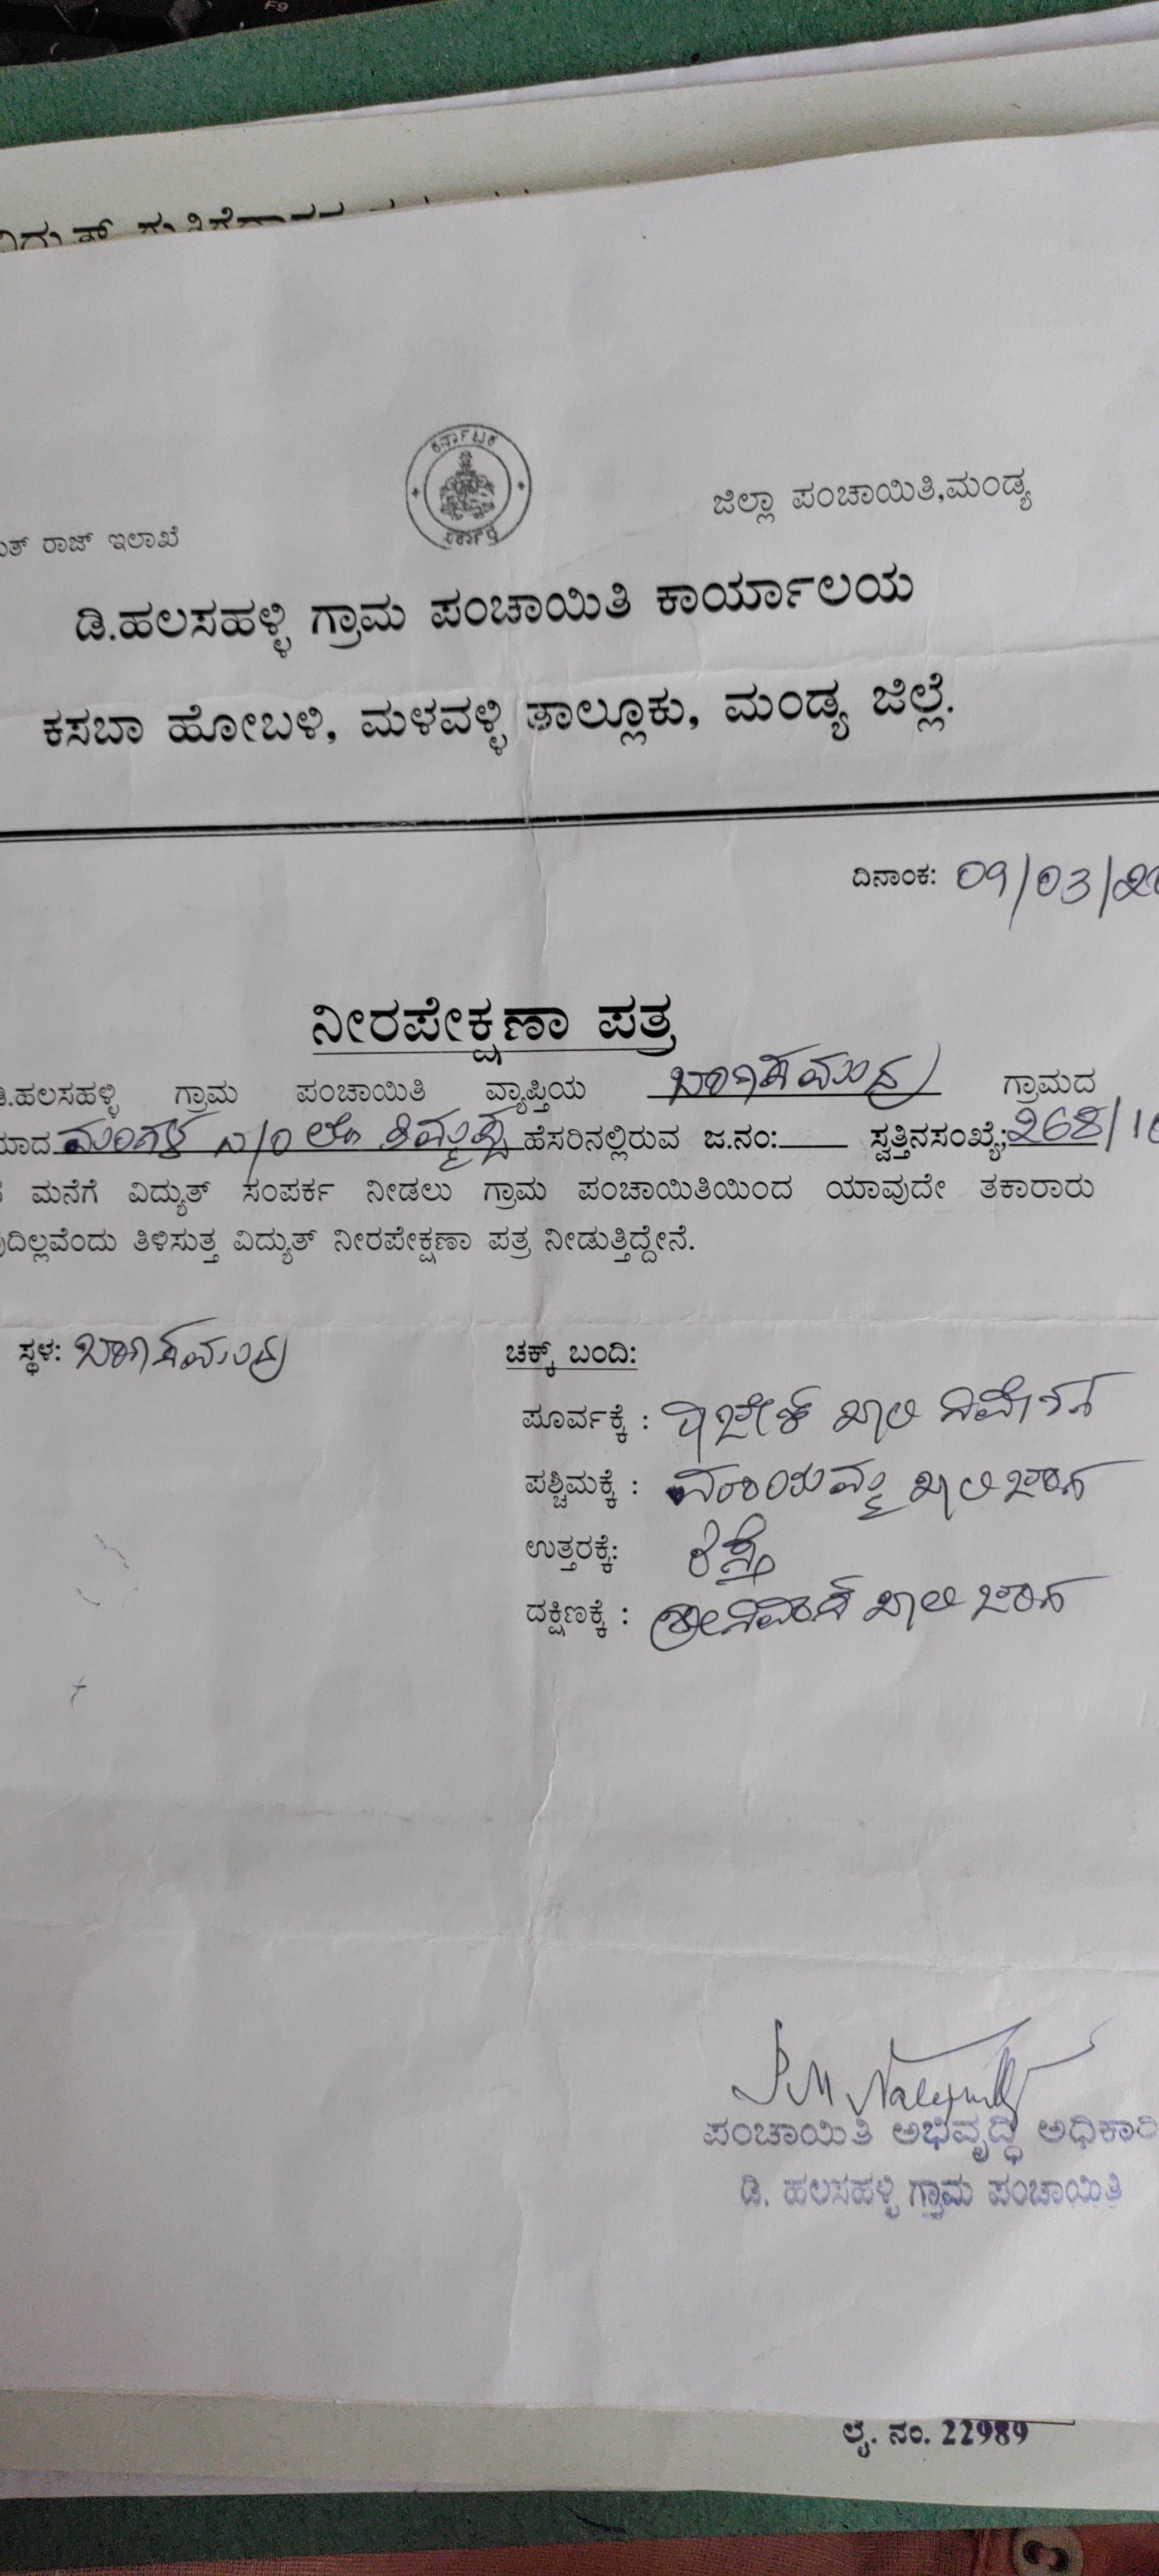 F9
ಕರ್ನಾಟಕ
ಸರ್ಕಾರ
ಜಿಲ್ಲಾ ಪಂಚಾಯಿತಿ,ಮಂಡ್ಯ
ರಾಜ್ ಇಲಾಖೆ
ಡಿ.ಹಲಸಹಳ್ಳಿ ಗ್ರಾಮ ಪಂಚಾಯಿತಿ ಕಾರ್ಯಾಲಯ
ಕಸಬಾ ಹೋಬಳಿ, ಮಳವಳ್ಳಿ ತಾಲ್ಲೂಕು, ಮಂಡ್ಯ ಜಿಲ್ಲೆ.
ದಿನಾಂಕ: 09/03/20
ನೀರಪೇಕ್ಷಣಾ ಪತ್ರ
ಡಿ.ಹಲಸಹಳ್ಳಿ ಗ್ರಾಮ ಪಂಚಾಯಿತಿ ವ್ಯಾಪ್ತಿಯ ಗ್ರಾಮದ
ಮಂಗಳ ಹೆಸರಿನಲ್ಲಿರುವ ಜ.ನಂ: ಸ್ವತ್ತಿನಸಂಖ್ಯೆ; 268/1
ಮನೆಗೆ ವಿದ್ಯುತ್ ಸಂಪರ್ಕ ನೀಡಲು ಗ್ರಾಮ ಪಂಚಾಯಿತಿಯಿಂದ ಯಾವುದೇ ತಕಾರಾರು
ತಿಳಿಸುತ್ತ ವಿದ್ಯುತ್ ನೀರಪೇಕ್ಷಣಾ ಪತ್ರ ನೀಡುತ್ತಿದ್ದೇನೆ.
ಸ್ಥಳ:
ಚಕ್ಕ್ ಬಂದಿ:
ಪೂರ್ವಕ್ಕೆ : ಖಾಲಿ ನಿವೇಶನ
ಪಶ್ಚಿಮಕ್ಕೆ : ಖಾಲಿ ಜಾಗ
ಉತ್ತರಕ್ಕೆ: ರಸ್ತೆ
ದಕ್ಷಿಣಕ್ಕೆ : ಖಾಲಿ ಜಾಗ
ಪಂಚಾಯಿತಿ ಅಭಿವೃದ್ಧಿ ಅಧಿಕಾರಿ
ಡಿ. ಹಲಸಹಳ್ಳಿ ಗ್ರಾಮ ಪಂಚಾಯಿತಿ
ಲೈ. ನಂ. 22989